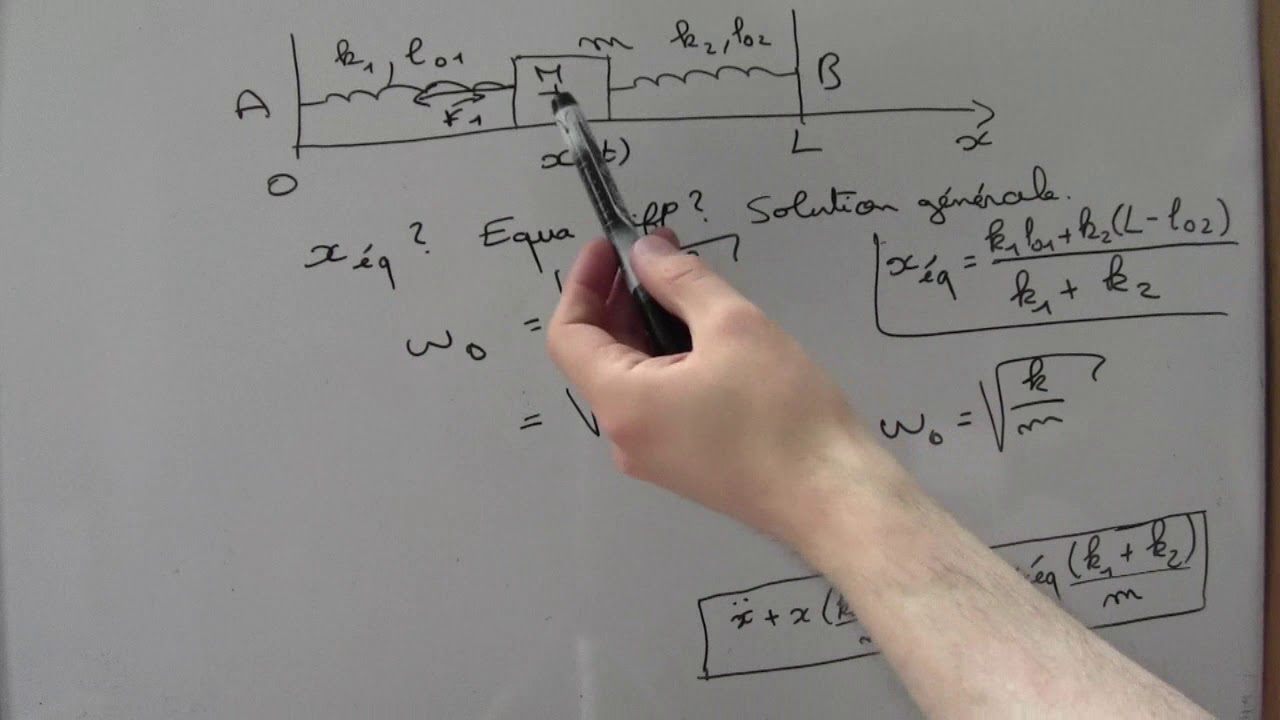 k₁, l₀₁ m k₂, l₀₂
A M B
F₁
x t) L x
O
x éq ? Equa iff ? Solution générale.
x éq = k₁l₀₁ + k₂(L - l₀₂) / k₁ + k₂
ω₀ =
= √
ω₀ = √k/m
ẍ + x (k éq (k₁ + k₂) / m